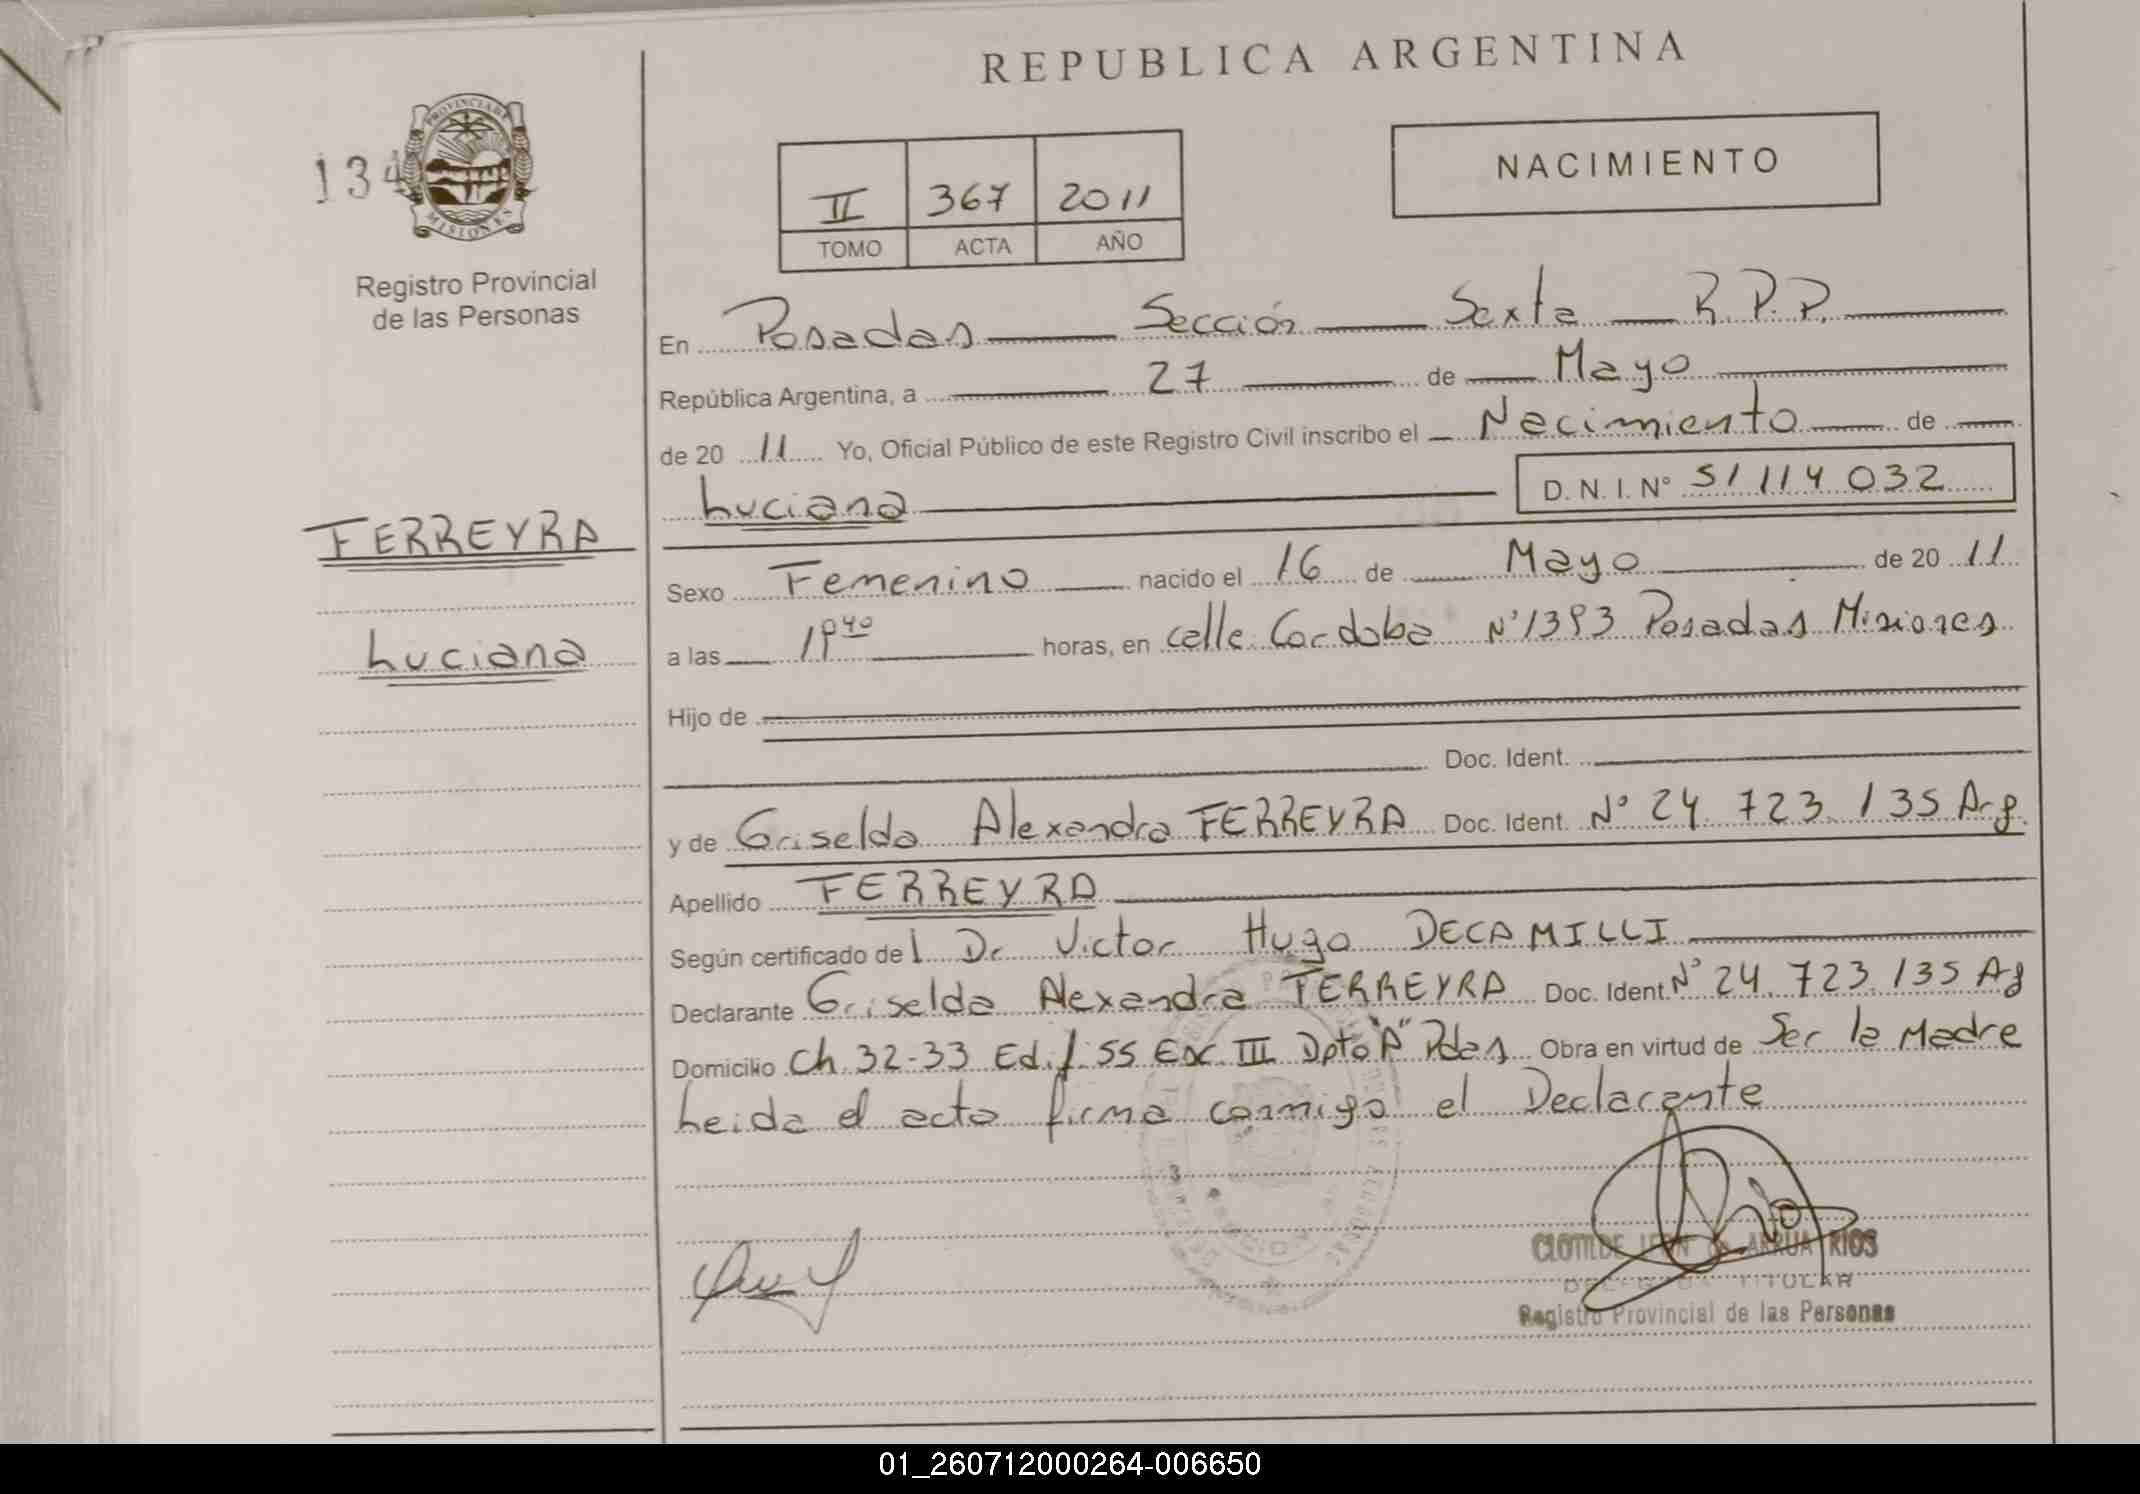 REPUBLICA ARGENTINA
134
PROVINCIA DE
MISIONES
Registro Provincial
de las Personas
II 367 2011
TOMO ACTA AÑO
NACIMIENTO
En Posadas Sección Sexta R.P.P.
República Argentina, a 27 de Mayo
de 20 11 Yo, Oficial Público de este Registro Civil inscribo el Nacimiento de
Luciana D.N.I. N° 51 114 032
FERREYRA
Luciana
Sexo Femenino nacido el 16 de Mayo de 20 11
a las horas, en calle Cordoba N° 1393 Posadas Misiones
Hijo de
Doc. Ident.
y de Griselda Alexandra FERREYRA Doc. Ident. N° 24.723.135 Arg.
Apellido FERREYRA
Según certificado del Dr Victor Hugo DECAMILLI
Declarante Griselda Alexandra FERREYRA Doc. Ident. N° 24.723.135 Ag
Domicilio Ch. 32-33 Edif 55 Esc III Dpto "A" Pdas Obra en virtud de Ser la Madre
Leida el acta firma conmigo el Declarante
CLOTILDE LEON de ARRUA RIOS
DELEGADA TITULAR
Registro Provincial de las Personas
01_260712000264-006650